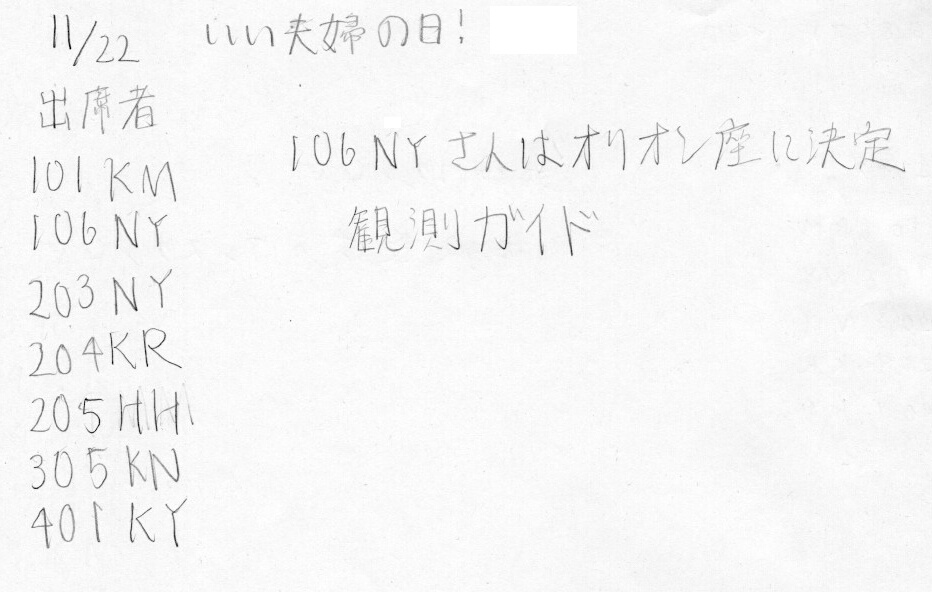 11/22 いい夫婦の日!
出席者
101 KM
106 NY
203 NY
204 KR
205 HH
305 KN
401 KY
106 NY さんはオリオン座に決定
観測ガイド